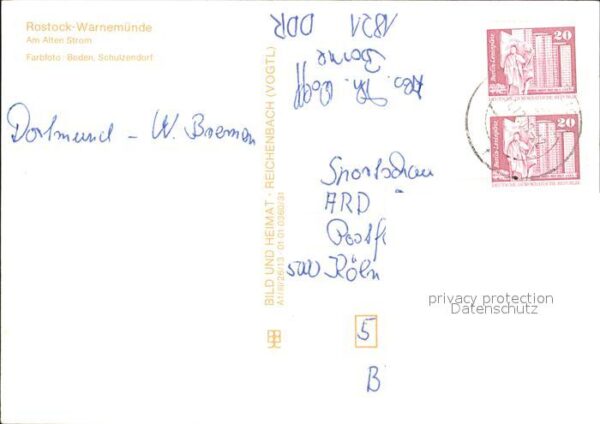 Rostock-Warnemünde
Am Alten Strom
Farbfoto: Boden, Schulzendorf
Dortmund - W. Bremen
BILD UND HEIMAT · REICHENBACH (VOGTL)
A1/III/26/13 · 01 01 0360/31
Abs. Th.
1821 DDR
Sportschau
ARD
Postf.
5000 Köln
5
B
20
Berlin-Leninplatz
DEUTSCHE DEMOKRATISCHE REPUBLIK
20
Berlin-Leninplatz
DEUTSCHE DEMOKRATISCHE REPUBLIK
privacy protection
Datenschutz